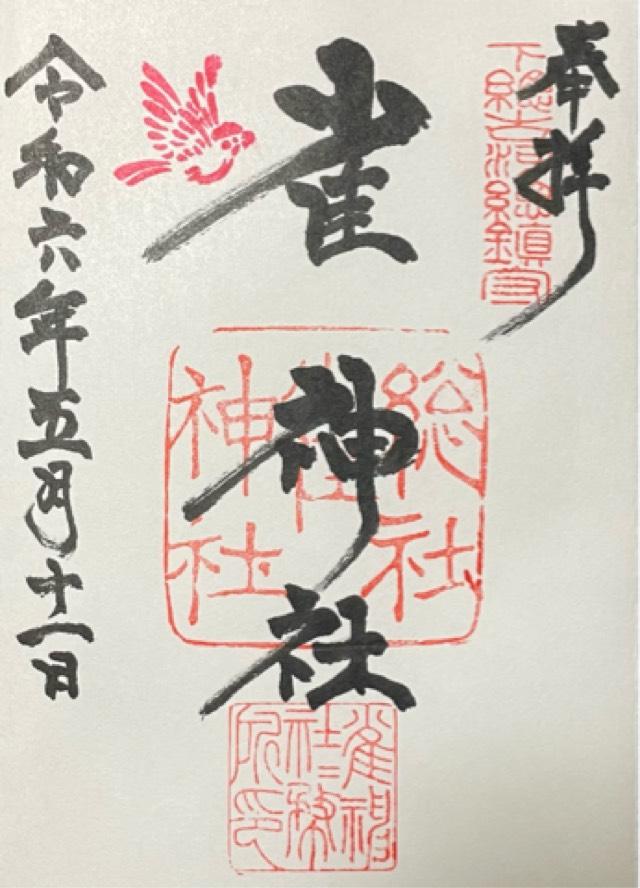 奉拝
下総古河総鎮守
雀神社
総社
雀
神社
雀神
社務
所印
令和六年五月十一日